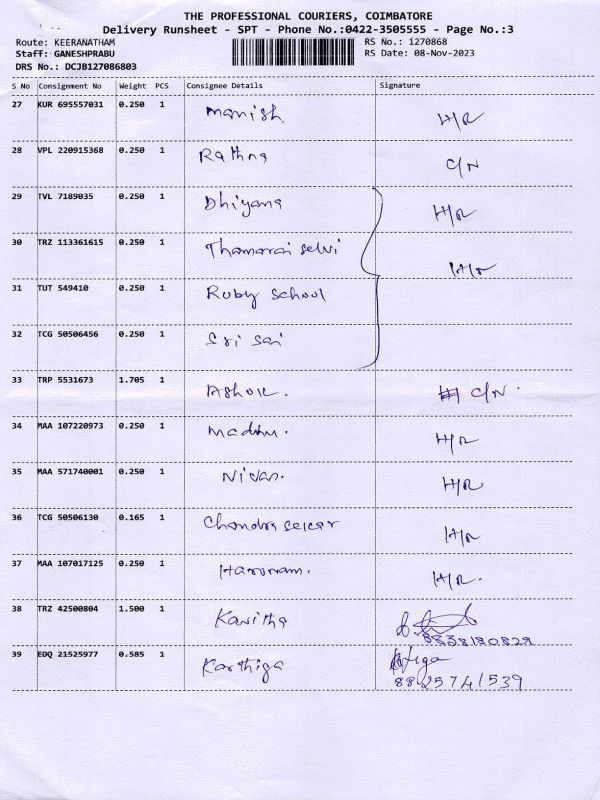 THE PROFESSIONAL COURIERS, COIMBATORE
Delivery Runsheet - SPT - Phone No.:0422-3505555 - Page No.:3
Route: KEERANATHAM RS No.: 1270868
Staff: GANESHPRABU RS Date: 08-Nov-2023
DRS No.: DCJB127086803
S No Consignment No Weight PCS Consignee Details Signature
27 KUR 695557031 0.250 1 manish H/R
28 VPL 220915368 0.250 1 Rathna C/N
29 TVL 7189035 0.250 1 Dhiyana H/R
30 TRZ 113361615 0.250 1 Thamarai selvi H/r
31 TUT 549410 0.250 1 Ruby school
32 TCG 50506456 0.250 1 Sri sai
33 TRP 5531673 1.705 1 Ashok. C/N.
34 MAA 107220973 0.250 1 madhu. H/R
35 MAA 571740001 0.250 1 Nivas. H/R
36 TCG 50506130 0.165 1 Chandra sekar H/R
37 MAA 107017125 0.250 1 Hariram. H/R.
38 TRZ 42500804 1.500 1 Kavitha
8838180829
39 EDQ 21525977 0.585 1 Karthiga
8825741539